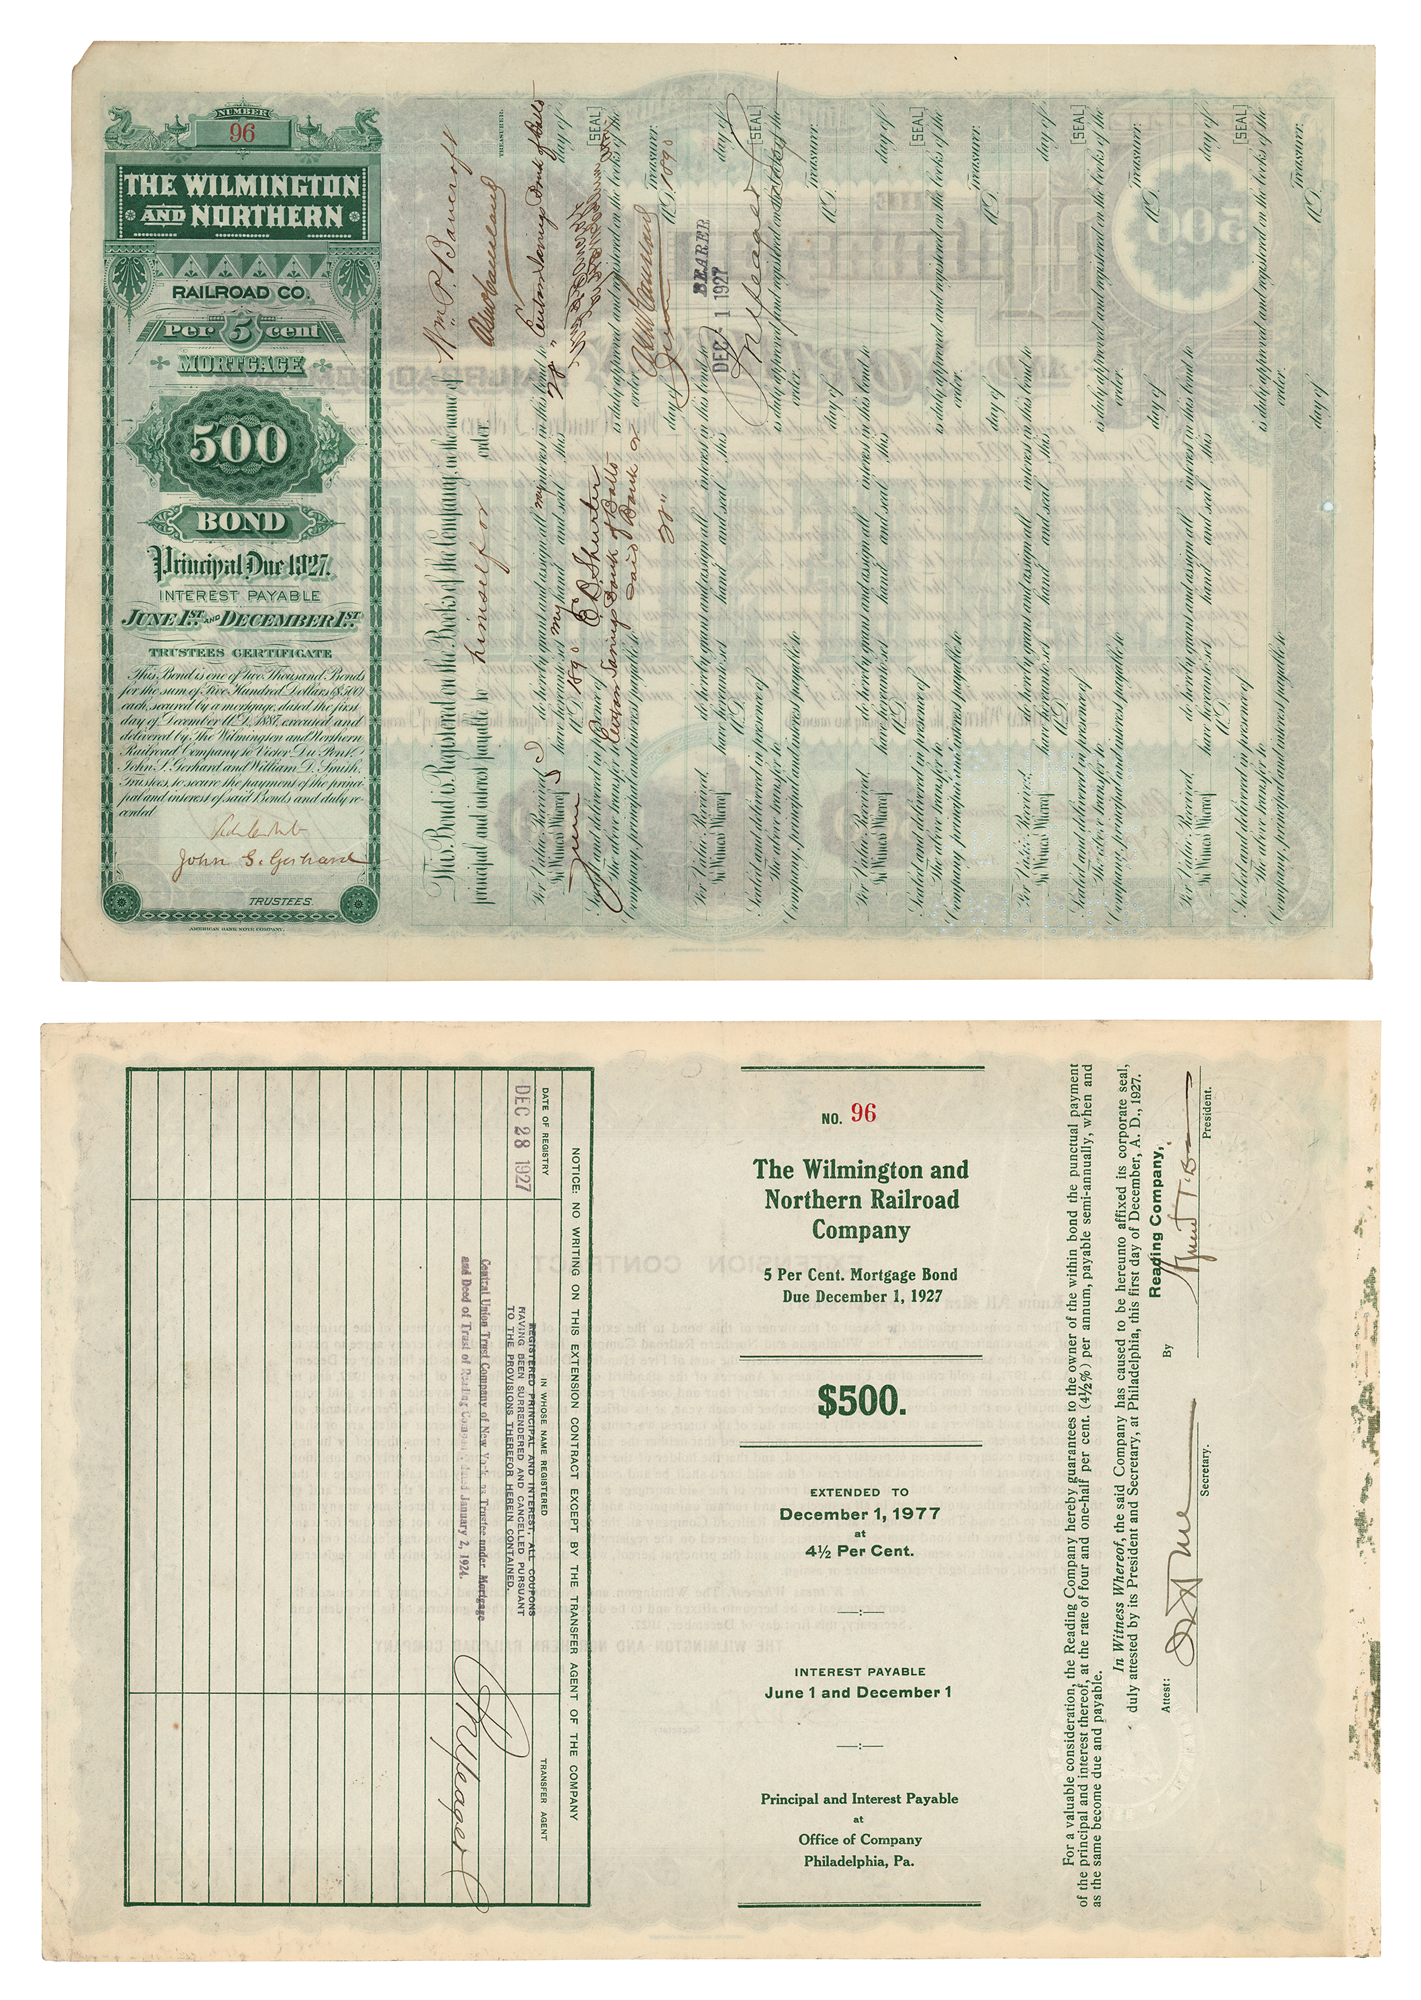 NUMBER
96
THE WILMINGTON
AND NORTHERN
RAILROAD CO.
Per 5 cent
MORTGAGE
500
BOND
Principal Due 1927.
INTEREST PAYABLE
JUNE 1ST AND DECEMBER 1ST
TRUSTEES CERTIFICATE
This Bond is one of Two Thousand Bonds
for the sum of Five Hundred Dollars ($500)
each, secured by a mortgage, dated the first
day of December A.D. 1887, executed and
delivered by The Wilmington and Northern
Railroad Company to Victor Du Pont,
John S. Gerhard and William D. Smith,
Trustees, to secure the payment of the princi-
pal and interest of said Bonds and duly re-
corded.
John S. Gerhard
TRUSTEES.
AMERICAN BANK NOTE COMPANY.
This Bond is Registered on the Books of the Company, in the name of Wm. P. Bancroft
principal and interest payable to himself or order.
TREASURER.
For Value Received, I do hereby grant and assign all my interest in this bond to Easton Savings Bank of Balto
In Witness Whereof, have hereunto set my hand and seal this 28" day of
June A.D. 1890
[SEAL]
Sealed and delivered in presence of
The above transfer to Easton Savings Bank of Balto is duly approved and registered on the books of the
Company, principal and interest payable to said Bank or order.
28" day of June A.D. 1890
Treasurer.
For Value Received, do hereby grant and assign all interest in this bond to BEARER
In Witness Whereof, have hereunto set hand and seal this day of
DEC - 1 1927
A.D. [SEAL]
Sealed and delivered in presence of
The above transfer to is duly approved and registered on the books of the
Company, principal and interest payable to order.
day of A.D. Treasurer.
For Value Received, do hereby grant and assign all interest in this bond to
In Witness Whereof, have hereunto set hand and seal this day of
A.D. [SEAL]
Sealed and delivered in presence of
The above transfer to is duly approved and registered on the books of the
Company, principal and interest payable to order.
day of A.D. Treasurer.
For Value Received, do hereby grant and assign all interest in this bond to
In Witness Whereof, have hereunto set hand and seal this day of
A.D. [SEAL]
Sealed and delivered in presence of
The above transfer to is duly approved and registered on the books of the
Company, principal and interest payable to order.
day of A.D. Treasurer.
For Value Received, do hereby grant and assign all interest in this bond to
In Witness Whereof, have hereunto set hand and seal this day of
A.D. [SEAL]
Sealed and delivered in presence of
The above transfer to is duly approved and registered on the books of the
Company, principal and interest payable to order.
day of A.D. Treasurer.
NOTICE: NO WRITING ON THIS EXTENSION CONTRACT EXCEPT BY THE TRANSFER AGENT OF THE COMPANY
DATE OF REGISTRY
IN WHOSE NAME REGISTERED
TRANSFER AGENT
DEC 28 1927
REGISTERED PRINCIPAL AND INTEREST, ALL COUPONS
HAVING BEEN SURRENDERED AND CANCELLED PURSUANT
TO THE PROVISIONS THEREFOR HEREIN CONTAINED.
Central Union Trust Company of New York, as Trustee under Mortgage
and Deed of Trust of Reading Company dated January 2, 1924.
NO. 96
The Wilmington and
Northern Railroad
Company
5 Per Cent. Mortgage Bond
Due December 1, 1927
$500.
EXTENDED TO
December 1, 1977
at
4½ Per Cent.
INTEREST PAYABLE
June 1 and December 1
Principal and Interest Payable
at
Office of Company
Philadelphia, Pa.
For a valuable consideration, the Reading Company hereby guarantees to the owner of the within bond the punctual payment
of the principal and interest thereof, at the rate of four and one-half per cent. (4½%) per annum, payable semi-annually, when and
as the same become due and payable.
In Witness Whereof, the said Company has caused to be hereunto affixed its corporate seal,
duly attested by its President and Secretary, at Philadelphia, this first day of December, A. D., 1927.
Reading Company,
By
President.
Attest:
Secretary.